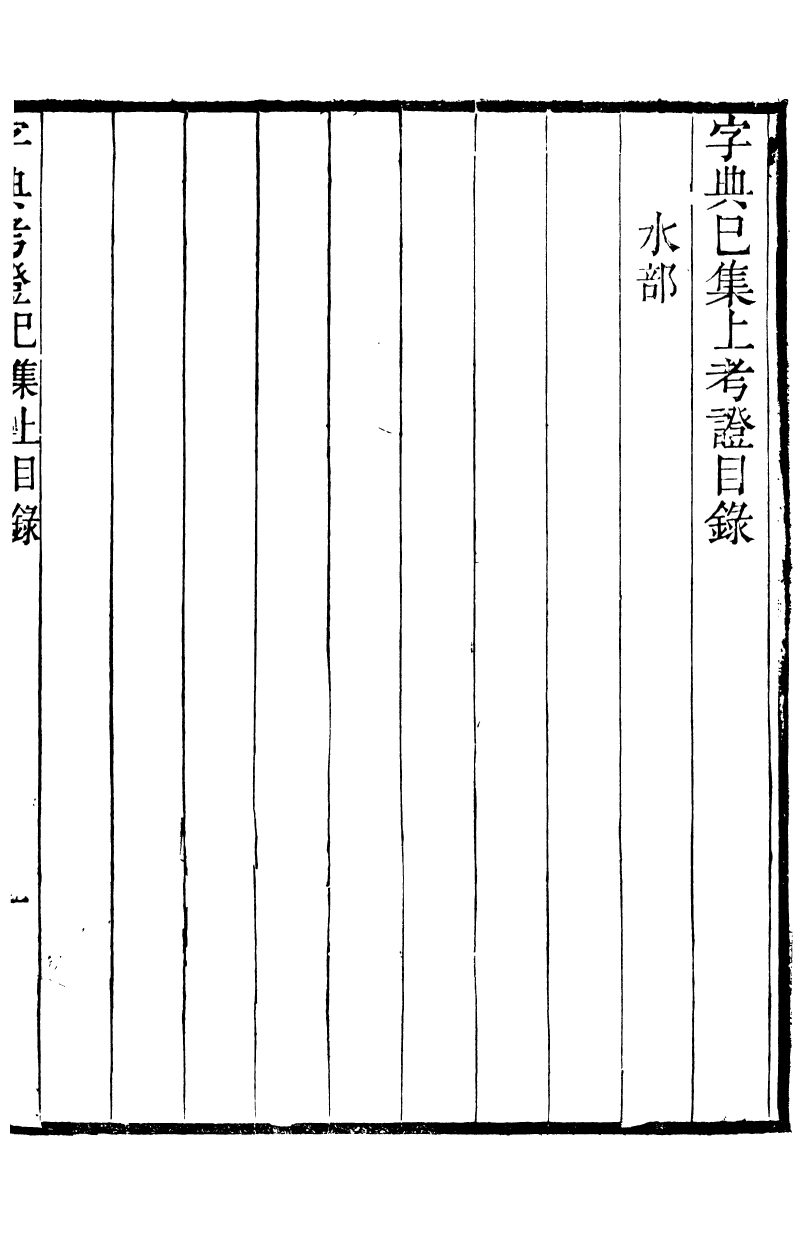 字典巳集上考證目錄
水部
字典考證巳集上目錄